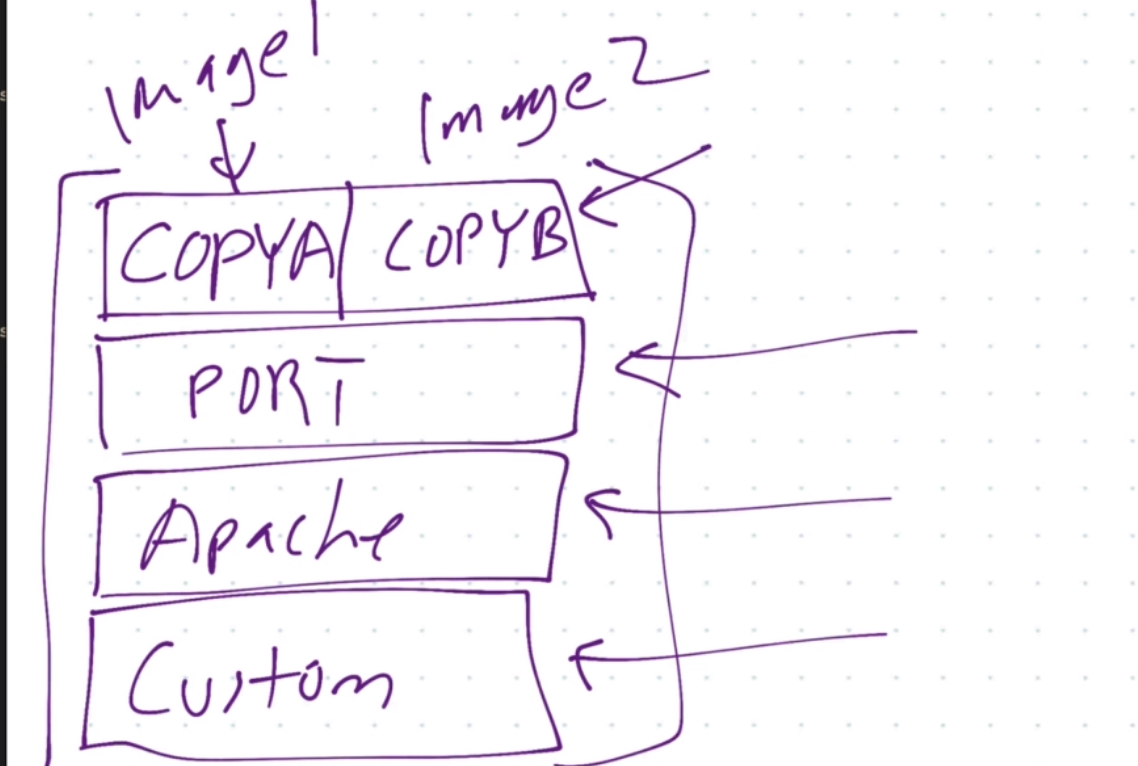 Image 1
Image 2
COPYA COPYB
PORT
Apache
Custom